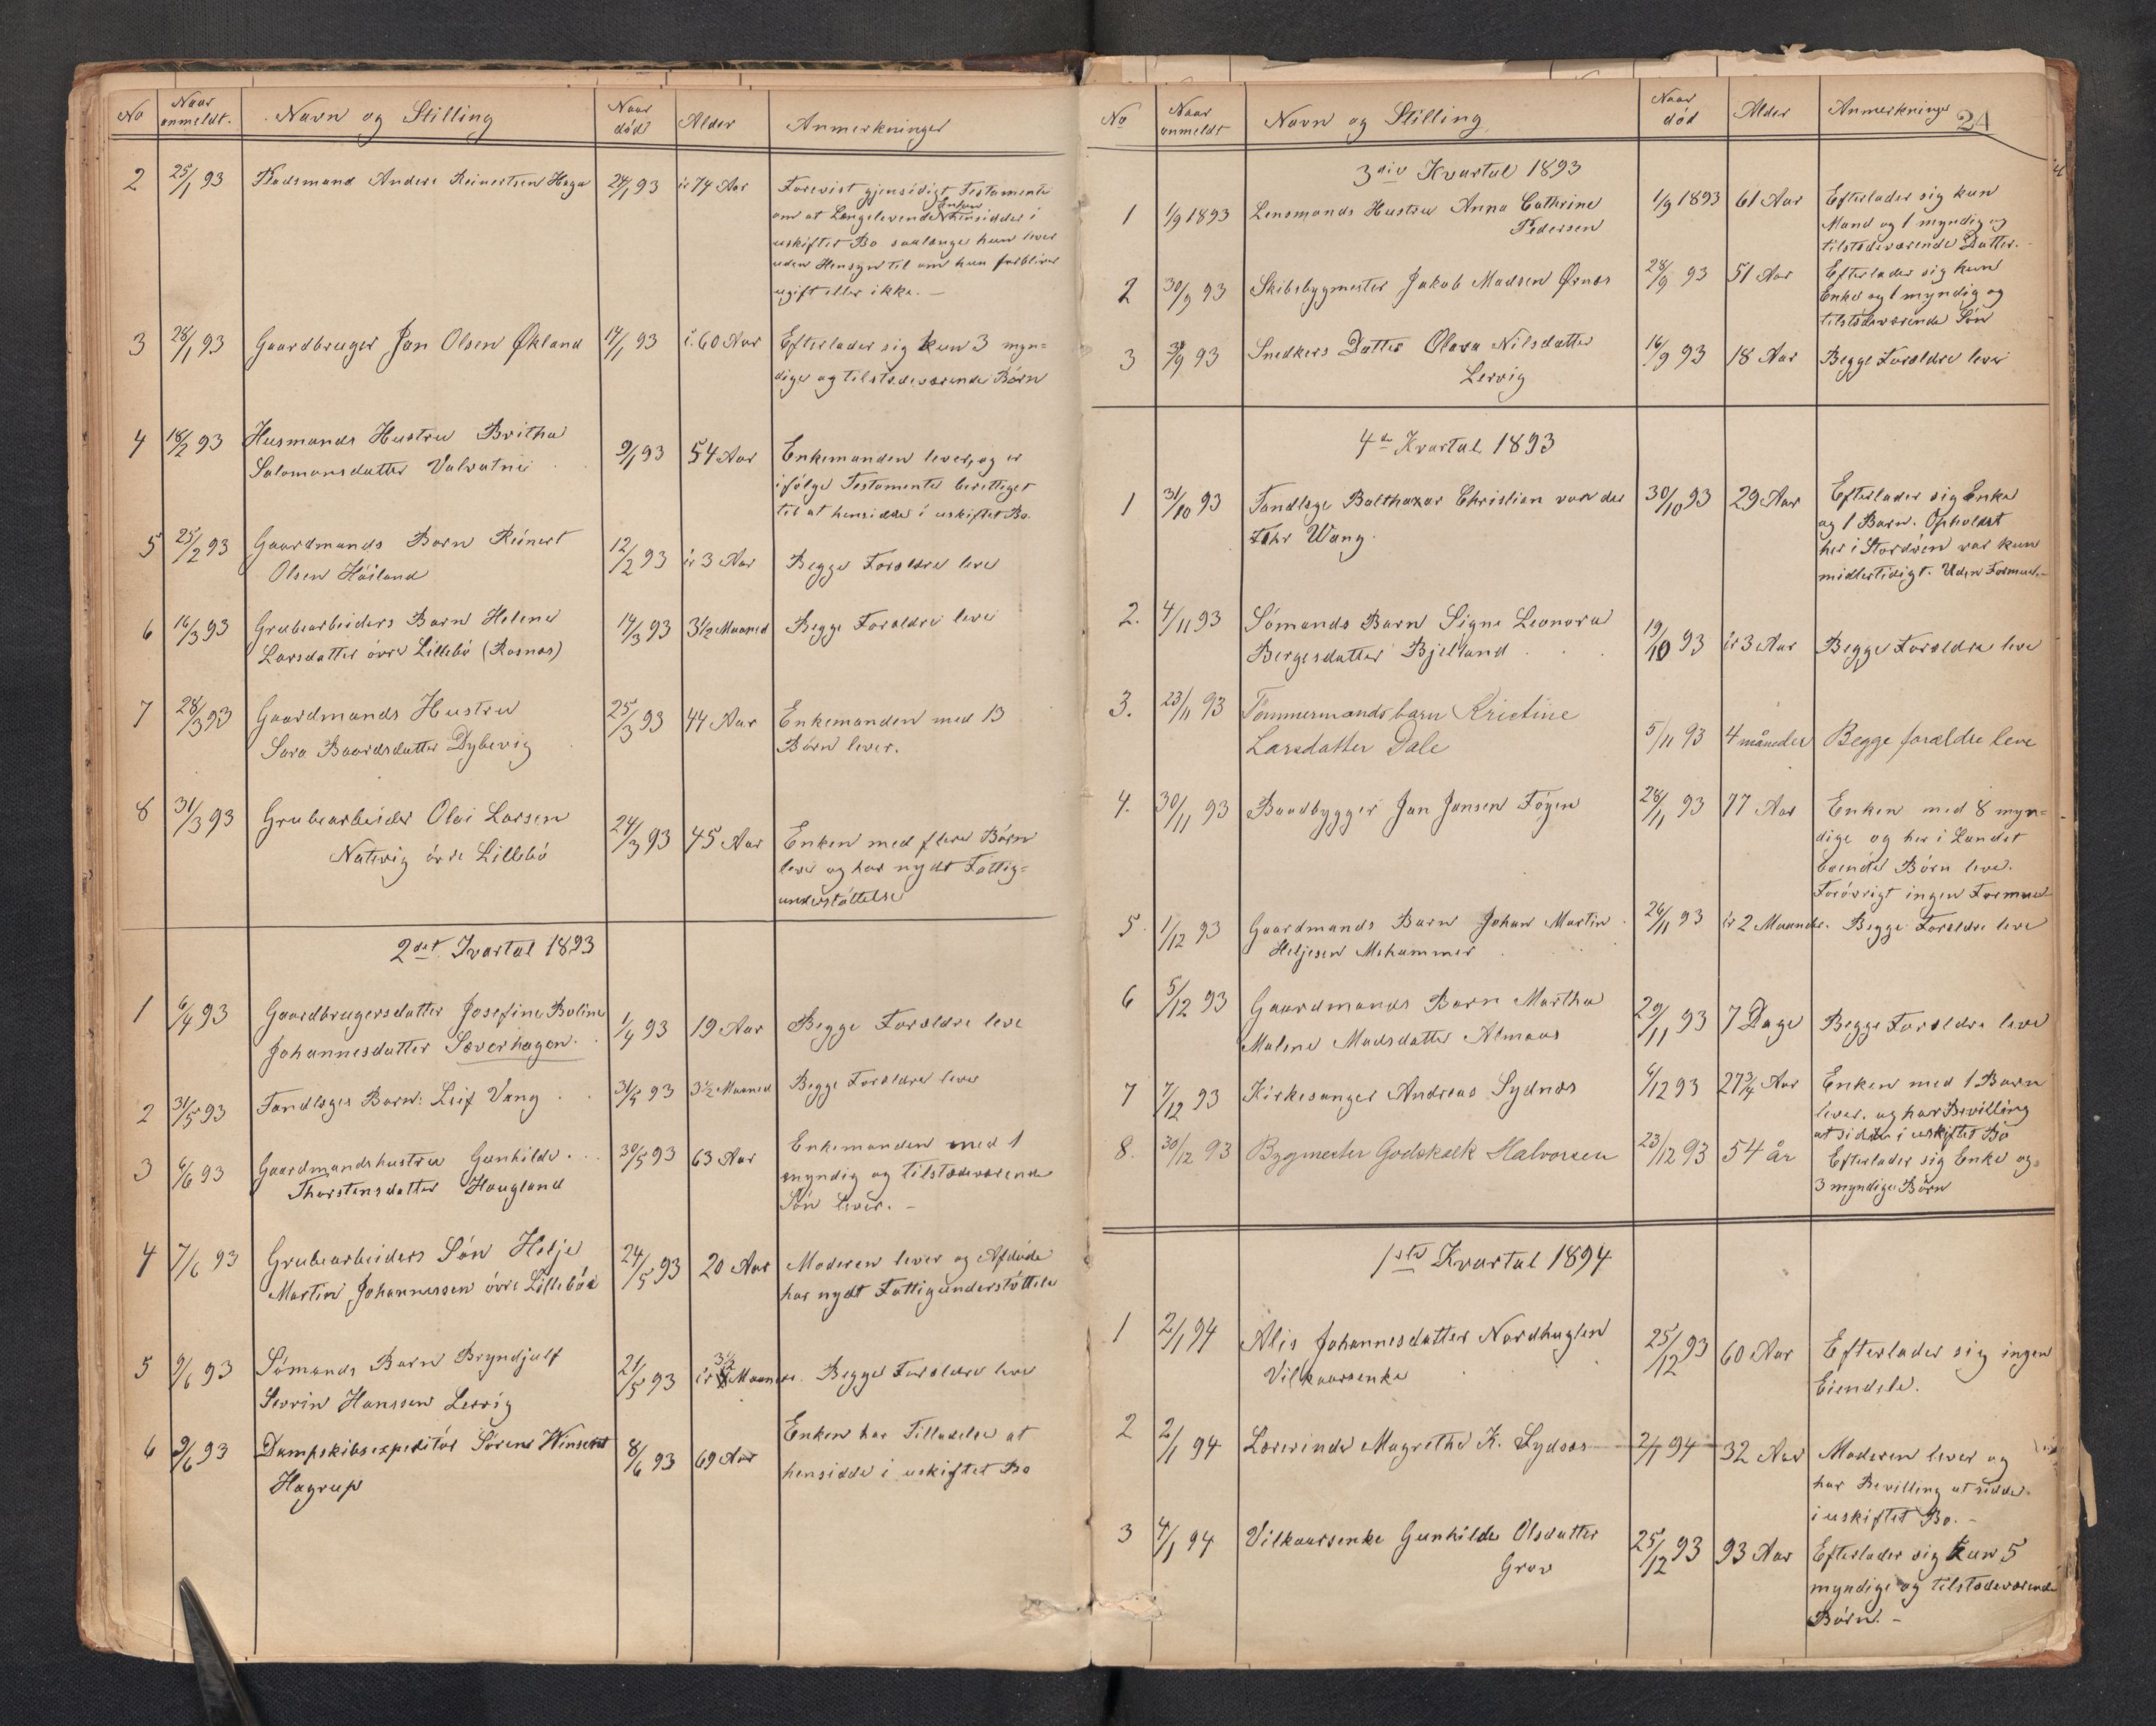 No Naar anmeldt. Navn og Stilling Naar död Alder Anmerkninger
2 25/1 93 Pladsmand Anders Reinertsen Haga 24/1 93 ir 74 Aar Forevist gjensidigt Testamente
om at Længstlevende Enken hensidder i
uskiftet Bo saalænge hun lever
uden Hensyn til om hun forbliver
ugift eller ikke. —
3 28/1 93 Gaardbruger Jan Olsen Økland 14/1 93 i. 60 Aar Efterlader sig kun 3 myn=
dige og tilstedeværende Børn
4 18/2 93 Husmands Hustru Britha 9/1 93 54 Aar Enkemanden lever, og er
Salomonsdatter Valvatne ifölge Testamente berettiget
til at hensidde i uskiftet Bo.
5 25/2 93 Gaardmands Barn Reinert 12/2 93 ir 3 Aar Begge Foreldre leve
Olsen Höiland
6 16/3 93 Grubearbeiders Barn Helene 14/3 93 3½ Maaned Begge Foreldre leve
Larsdatter övre Lillebö (Rosnæs)
7 28/3 93 Gaardmands Hustru 25/3 93 44 Aar Enkemanden med 13
Sara Baardsdatter Dybevig Börn lever.
8 31/3 93 Grubearbeider Olai Larsen 24/3 93 45 Aar Enken med flere Börn
Natvig övre Lillebö leve og har nydt Fattig=
understöttelse
2det Kvartal 1893
1 6/4 93 Gaardbrugersdatter Josefine Boline 1/4 93 19 Aar Begge Foreldre leve
Johannesdatter Sæverhagen.
2 31/5 93 Tandlæges Barn: Leif Vang 31/5 93 3½ Maaned Begge Foreldre leve
3 6/6 93 Gaardmandshustru Gunhilde 30/5 93 63 Aar Enkemanden med 1
Thorstensdatter Hougland myndig og tilstedeværende
Sön lever. —
4 7/6 93 Grubearbeiders Sön Helje 24/5 93 20 Aar Moderen lever og Afdöde
Martin Johannessen övre Lillebö har nydt Fattigunderstöttelse
5 9/6 93 Sömands Barn Bryndjulf 21/5 93 ir 3½ Maaned. Begge Foreldre leve
Severin Hanssen Lervig
6 9/6 93 Dampskibsexpeditör Sörens Winsents 8/6 93 69 Aar Enken har Tilladelse at
Hagrup hensidde i uskiftet Bo
No Naar anmeldt Navn og Stilling Naar död Alder Anmerkninger 24
3die Kvartal 1893
1 1/9 1893 Lensmands Hustru Anna Cathrine 1/9 1893 61 Aar Efterlader sig kun
Pedersen Mand og 1 myndig og
tilstedeværende Datter. —
2 30/9 93 Skibsbygmester Jakob Madsen Ørnes 28/9 93 51 Aar Efterlader sig kun
Enke og 1 myndig og
tilstedeværende Sön
3 30/9 93 Snedkers Datter Olava Nilsdatter 16/9 93 18 Aar Begge Foreldre lever
Lervig
4de Kvartal 1893
1 31/10 93 Tandlæge Balthazar Christian von der 30/10 93 29 Aar Efterlader sig Enke
Fehr Wang. og 1 Barn. Opholdet
her i Stordöen var kun
midlertidigt. Uden Formue. —
2. 4/11 93 Sömands Barn Signe Leonora 19/10 93 ir 3 Aar Begge Foreldre leve
Bergesdatter Bjelland
3. 23/11 93 Tömmermandsbarn Kristine
Larsdatter Dale 5/11 93 4 måneder Begge forældre leve
4. 30/11 93 Baadbygger Jan Jansen Föyen 28/11 93 77 Aar Enken med 8 myn=
dige og her i Landet
boende Börn leve.
Forövrigt ingen Formue
5. 1/12 93 Gaardmands Barn Johan Martin 26/11 93 ir 2 Maaneder. Begge Foreldre leve
Heljesen Mehammer
6 5/12 93 Gaardmands Barn Martha 29/11 93 7 Dage Begge Foreldre leve
Malene Madsdatter Almaas
7 7/12 93 Kirkesanger Andreas Sydnæs 6/12 93 27¾ Aar Enken med 1 Barn
lever. og har Bevilling
at sidde i uskiftet Bo
8. 30/12 93 Bygmester Godskalk Halvorsen 23/12 93 54 år Efterlader sig Enke og
3 myndige Börn
1ste Kvartal 1894
1 2/1 94 Alis Johannesdatter Nordhuglen 25/12 93 60 Aar Efterlader sig ingen
Vilkaarsenke Eiendele.
2 2/1 94 Lærerinde Magrethe K. Sydnes 2/1 94 32 Aar Moderen lever og
har Bevilling at sidde
i uskiftet Bo. —
3 4/1 94 Vilkaarsenke Gunhilde Olsdatter 25/12 93 93 Aar Efterlader sig kun 5
Grov myndige og tilstedeværende
Börn. —